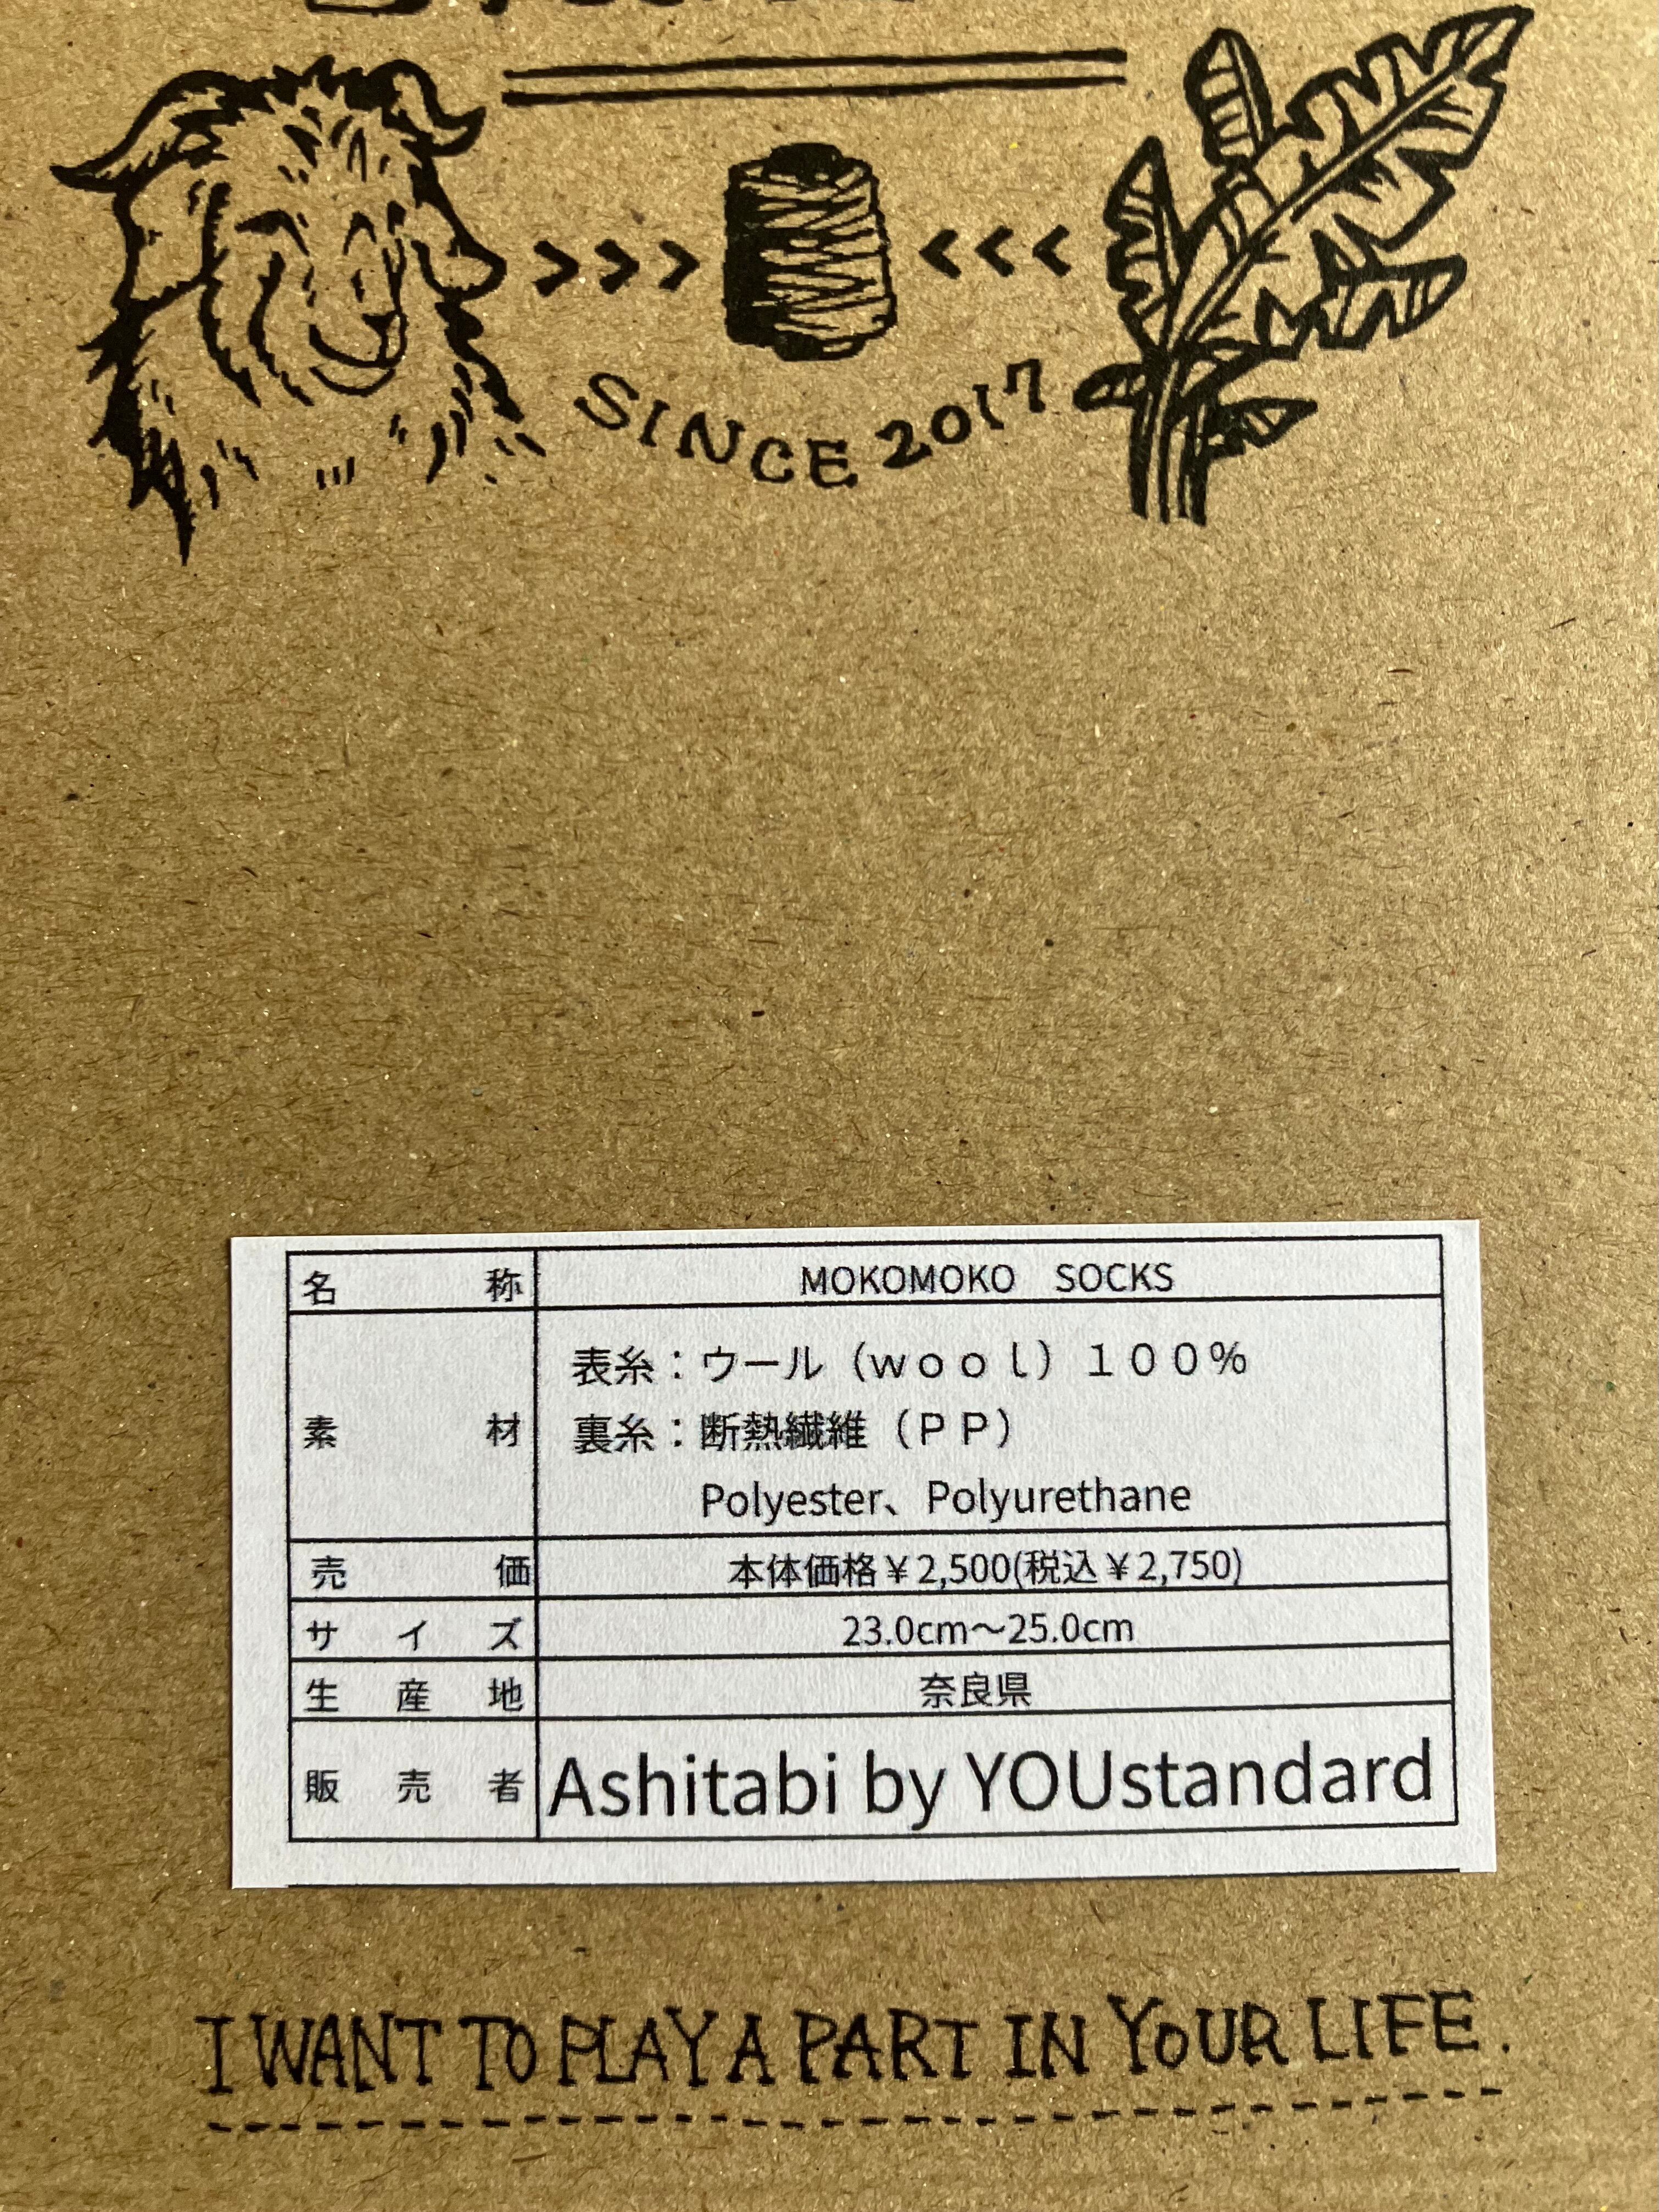 SINCE 2017
名称 MOKOMOKO SOCKS
素材 表糸：ウール（ｗｏｏｌ）１００％
裏糸：断熱繊維（ＰＰ）
Polyester、Polyurethane
売価 本体価格￥2,500(税込￥2,750)
サイズ 23.0cm～25.0cm
生産地 奈良県
販売者 Ashitabi by YOUstandard
I WANT TO PLAY A PART IN YOUR LIFE.